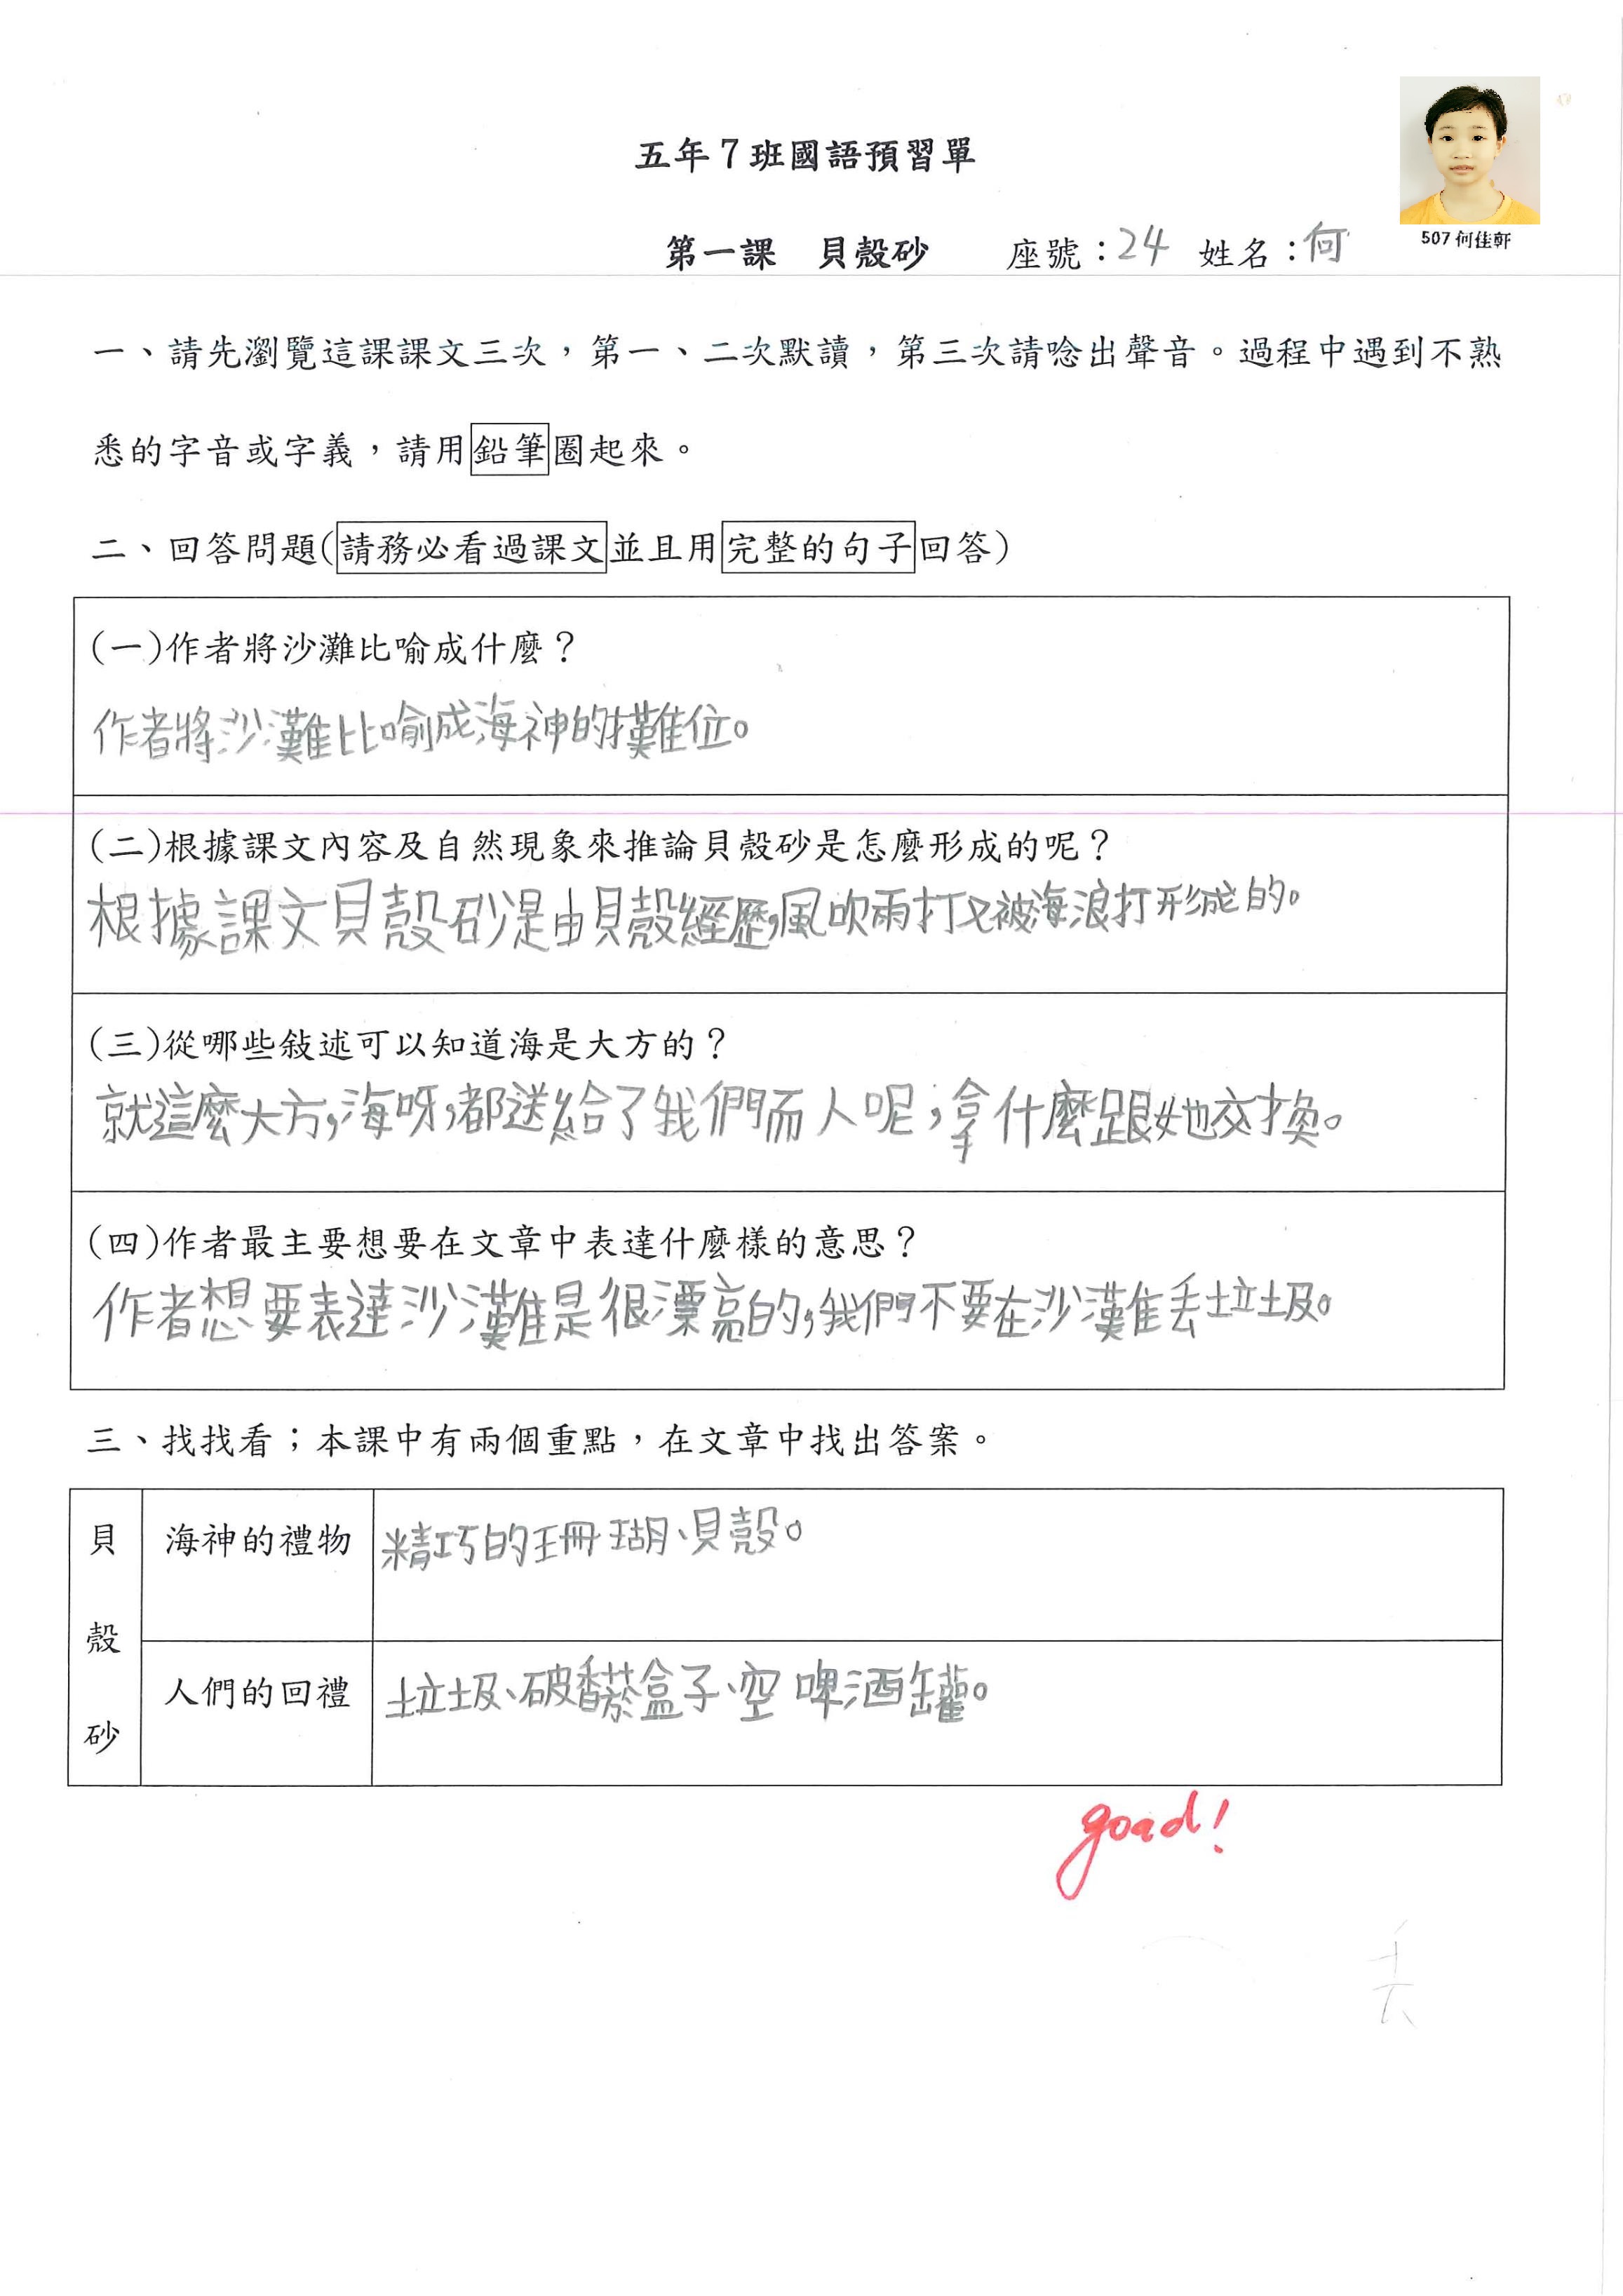 五年7班國語預習單
507何佳軒
第一課　貝殼砂　座號：24　姓名：何
一、請先瀏覽這課課文三次，第一、二次默讀，第三次請唸出聲音。過程中遇到不熟
悉的字音或字義，請用鉛筆圈起來。
二、回答問題(請務必看過課文並且用完整的句子回答)
(一)作者將沙灘比喻成什麼？
作者將沙灘比喻成海神的攤位。
(二)根據課文內容及自然現象來推論貝殼砂是怎麼形成的呢？
根據課文貝殼砂是由貝殼經歷，風吹雨打又被海浪打形成的。
(三)從哪些敍述可以知道海是大方的？
就這麼大方，海呀，都送給了我們而人呢，拿什麼跟她交換。
(四)作者最主要想要在文章中表達什麼樣的意思？
作者想要表達沙灘是很漂亮的，我們不要在沙灘丟垃圾。
三、找找看；本課中有兩個重點，在文章中找出答案。
貝殼砂
海神的禮物
精巧的珊瑚、貝殼。
人們的回禮
垃圾、破香菸盒子、空啤酒罐。
good!
丟